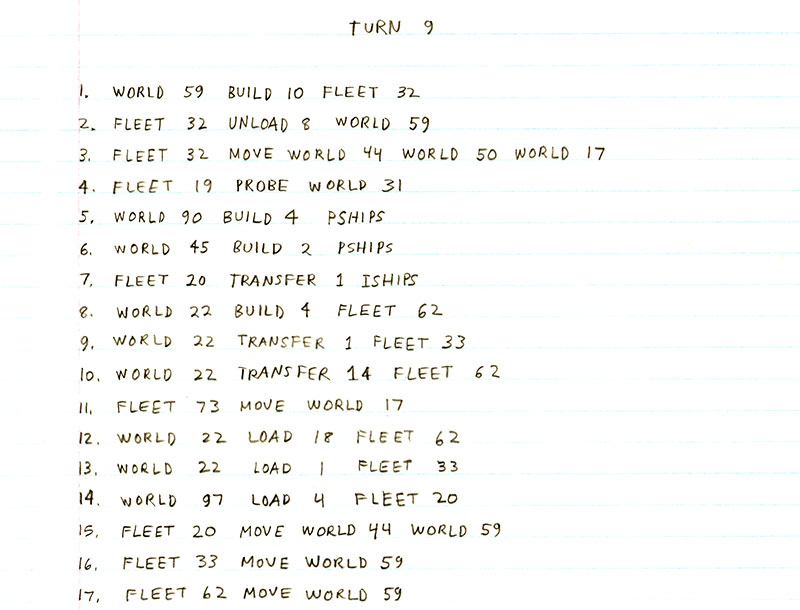 TURN 9
1. WORLD 59 BUILD 10 FLEET 32
2. FLEET 32 UNLOAD 8 WORLD 59
3. FLEET 32 MOVE WORLD 44 WORLD 50 WORLD 17
4. FLEET 19 PROBE WORLD 31
5. WORLD 90 BUILD 4 PSHIPS
6. WORLD 45 BUILD 2 PSHIPS
7. FLEET 20 TRANSFER 1 ISHIPS
8. WORLD 22 BUILD 4 FLEET 62
9. WORLD 22 TRANSFER 1 FLEET 33
10. WORLD 22 TRANSFER 14 FLEET 62
11. FLEET 73 MOVE WORLD 17
12. WORLD 22 LOAD 18 FLEET 62
13. WORLD 22 LOAD 1 FLEET 33
14. WORLD 97 LOAD 4 FLEET 20
15. FLEET 20 MOVE WORLD 44 WORLD 59
16. FLEET 33 MOVE WORLD 59
17. FLEET 62 MOVE WORLD 59